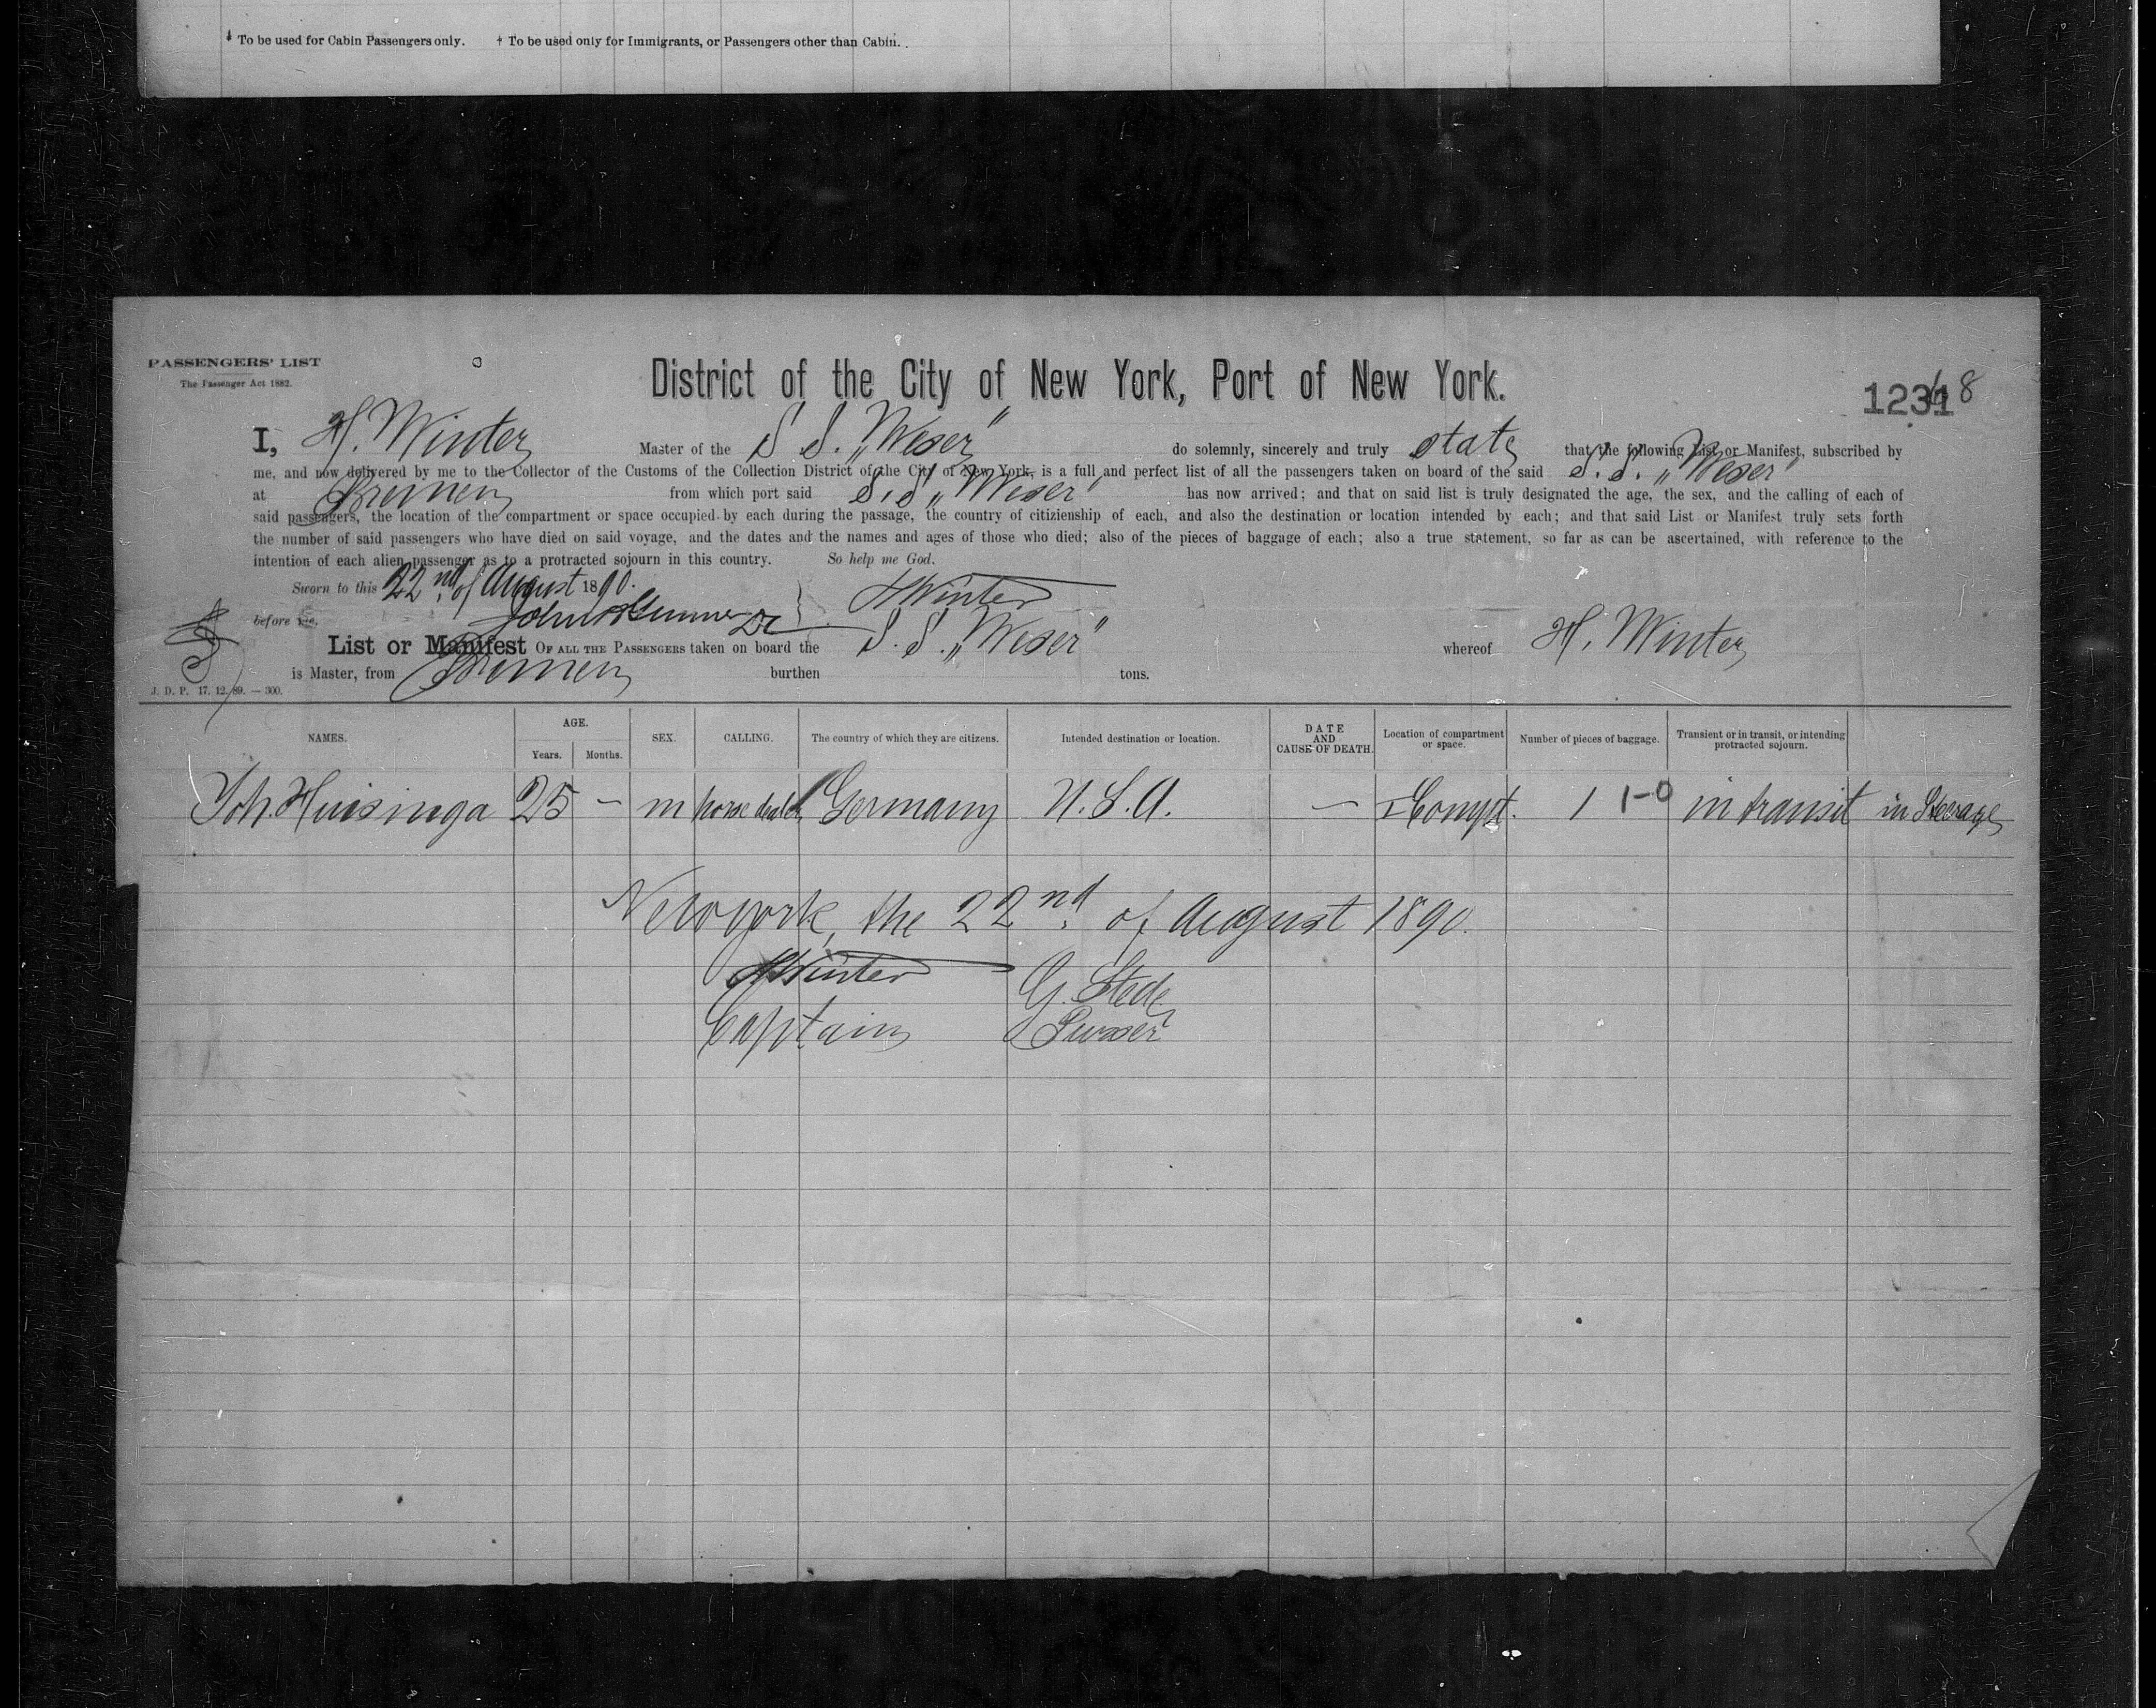 ‡ To be used for Cabin Passengers only. † To be used only for Immigrants, or Passengers other than Cabin.
PASSENGERS' LIST
The Passenger Act 1882.
District of the City of New York, Port of New York.
I, H. Winter Master of the S.S. „Weser" do solemnly, sincerely and truly state that the following List or Manifest, subscribed by
me, and now delivered by me to the Collector of the Customs of the Collection District of the City of New York, is a full and perfect list of all the passengers taken on board of the said S.S. „Weser"
at Bremen from which port said S.S. „Weser" has now arrived; and that on said list is truly designated the age, the sex, and the calling of each of
said passengers, the location of the compartment or space occupied by each during the passage, the country of citizienship of each, and also the destination or location intended by each; and that said List or Manifest truly sets forth
the number of said passengers who have died on said voyage, and the dates and the names and ages of those who died; also of the pieces of baggage of each; also a true statement, so far as can be ascertained, with reference to the
intention of each alien passenger as to a protracted sojourn in this country. So help me God.
Sworn to this 22nd of August 1890. HWinter
before me,
List or Manifest OF ALL THE PASSENGERS taken on board the S.S. „Weser" whereof H. Winter
is Master, from Bremen burthen tons.
J. D. P. 17. 12. 89. — 300.
NAMES. AGE. Years. Months. SEX. CALLING. The country of which they are citizens. Intended destination or location. DATE AND CAUSE OF DEATH. Location of compartment or space. Number of pieces of baggage. Transient or in transit, or intending protracted sojourn.
Joh. Huisinga 25 – m horse dealer Germany U.S.A. – I Compt. 1 1-0 in transit in Steerage
Newyork, the 22nd of August 1890.
HWinter G. Stede
Captain Purser